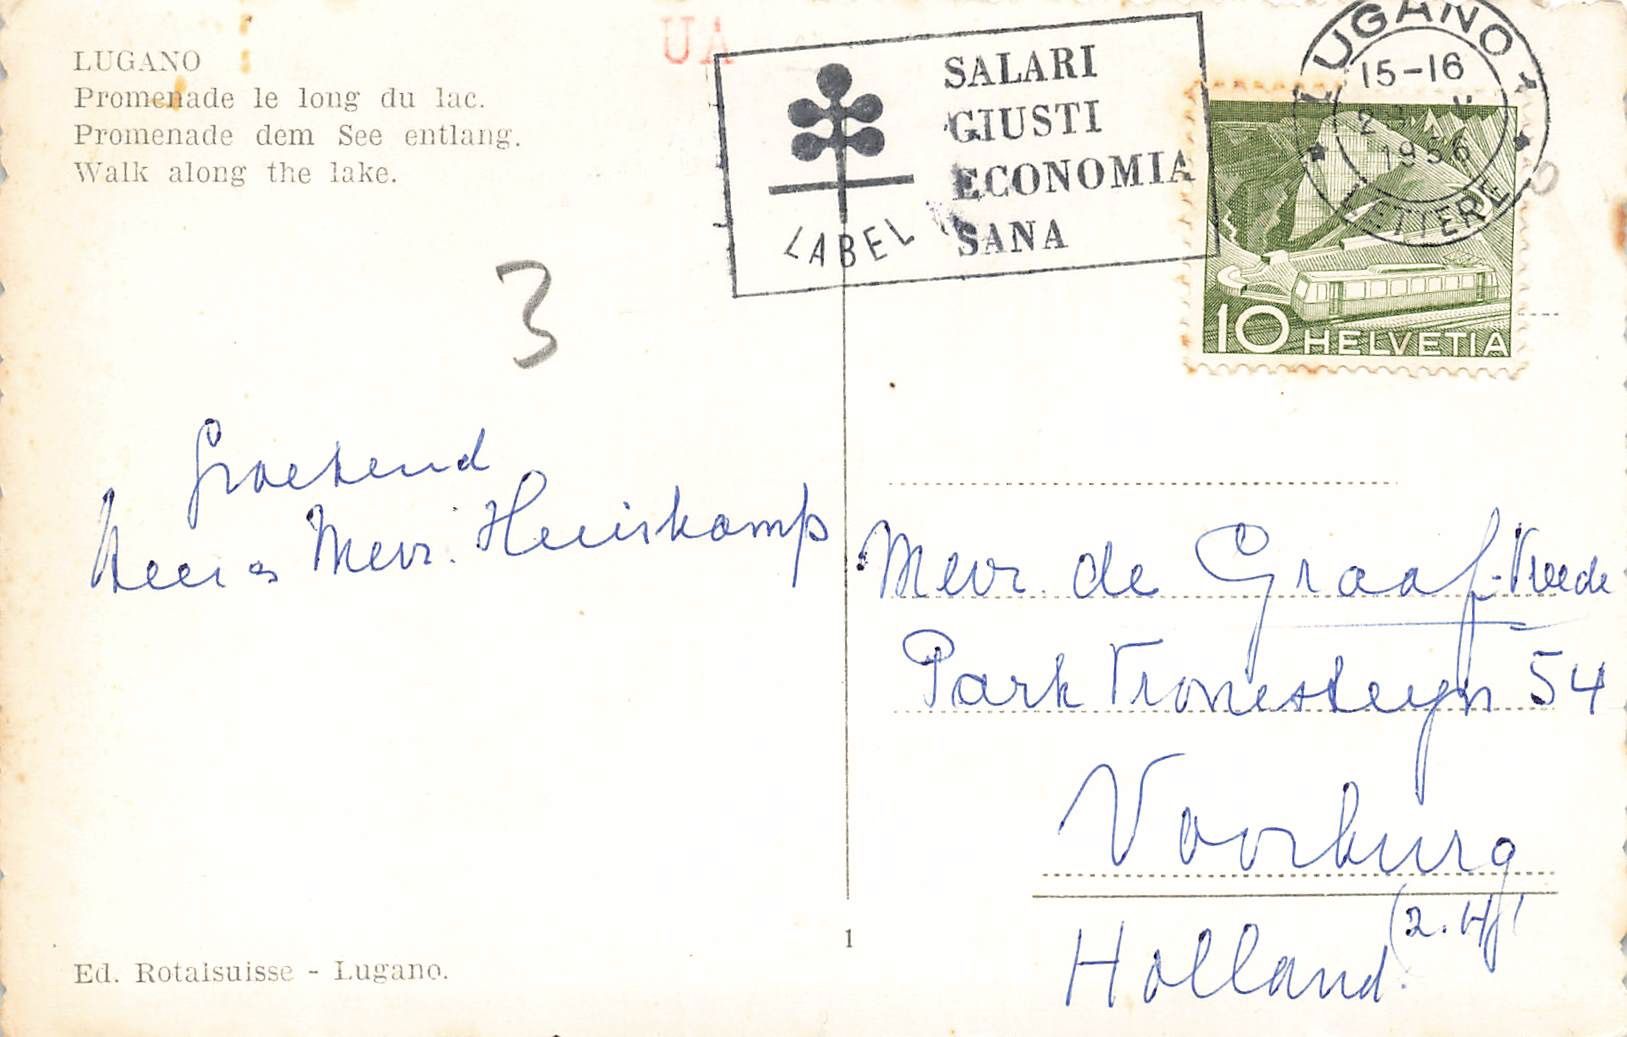 LUGANO
Promenade le long du lac.
Promenade dem See entlang.
Walk along the lake.
UA
SALARI
GIUSTI
ECONOMIA
SANA
LABEL
LUGANO
15-16
1956
LETTERE
10 HELVETIA
3
Groetend
Heer en Mevr. Heuiskamp
Mevr. de Graaf-Vreede
Park Vronesteyn 54
Voorburg
(Z.H)
Holland.
1
Ed. Rotalsuisse - Lugano.